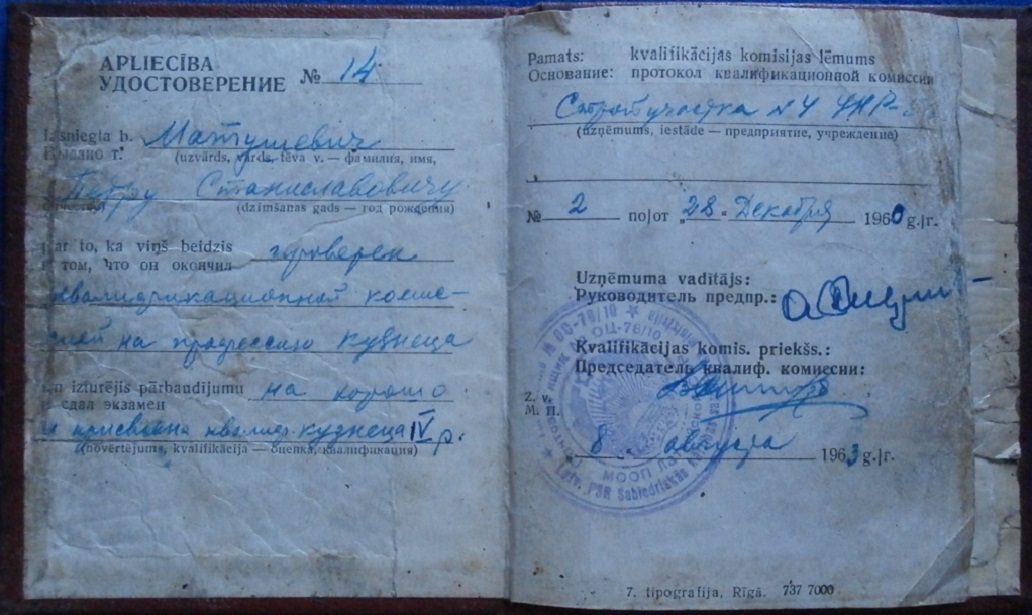 APLIECĪBA
УДОСТОВЕРЕНИЕ № 14
Izsniegta b. Матушевич
Выдано т. (uzvārds, vārds, tēva v. — фамилия, имя,
Петру Станиславовичу
(dzimšanas gads — год рождения)
par to, ka viņš beidzis проверен
в том, что он окончил
квалификационной комис-
сией на профессию кузнеца
un izturējis pārbaudījumu на хорошо
и сдал экзамен
и присвоена квалиф. кузнеца IV р.
(novērtējums, kvalifikācija — оценка, квалификация)
Pamats: kvalifikācijas komisijas lēmums
Основание: протокол квалификационной комиссии
Стройучастка № 4 УНР-
(uzņēmums, iestāde — предприятие, учреждение)
№ 2 no|от „28“ Декабря 1960 g.|г.
Uzņēmuma vadītājs:
Руководитель предпр.:
Kvalifikācijas komis. priekšs.:
Председатель квалиф. комиссии:
Z. v.
М. П.
8 августа 1963 g.|г.
7. tipografija, Rīgā. 737 7000